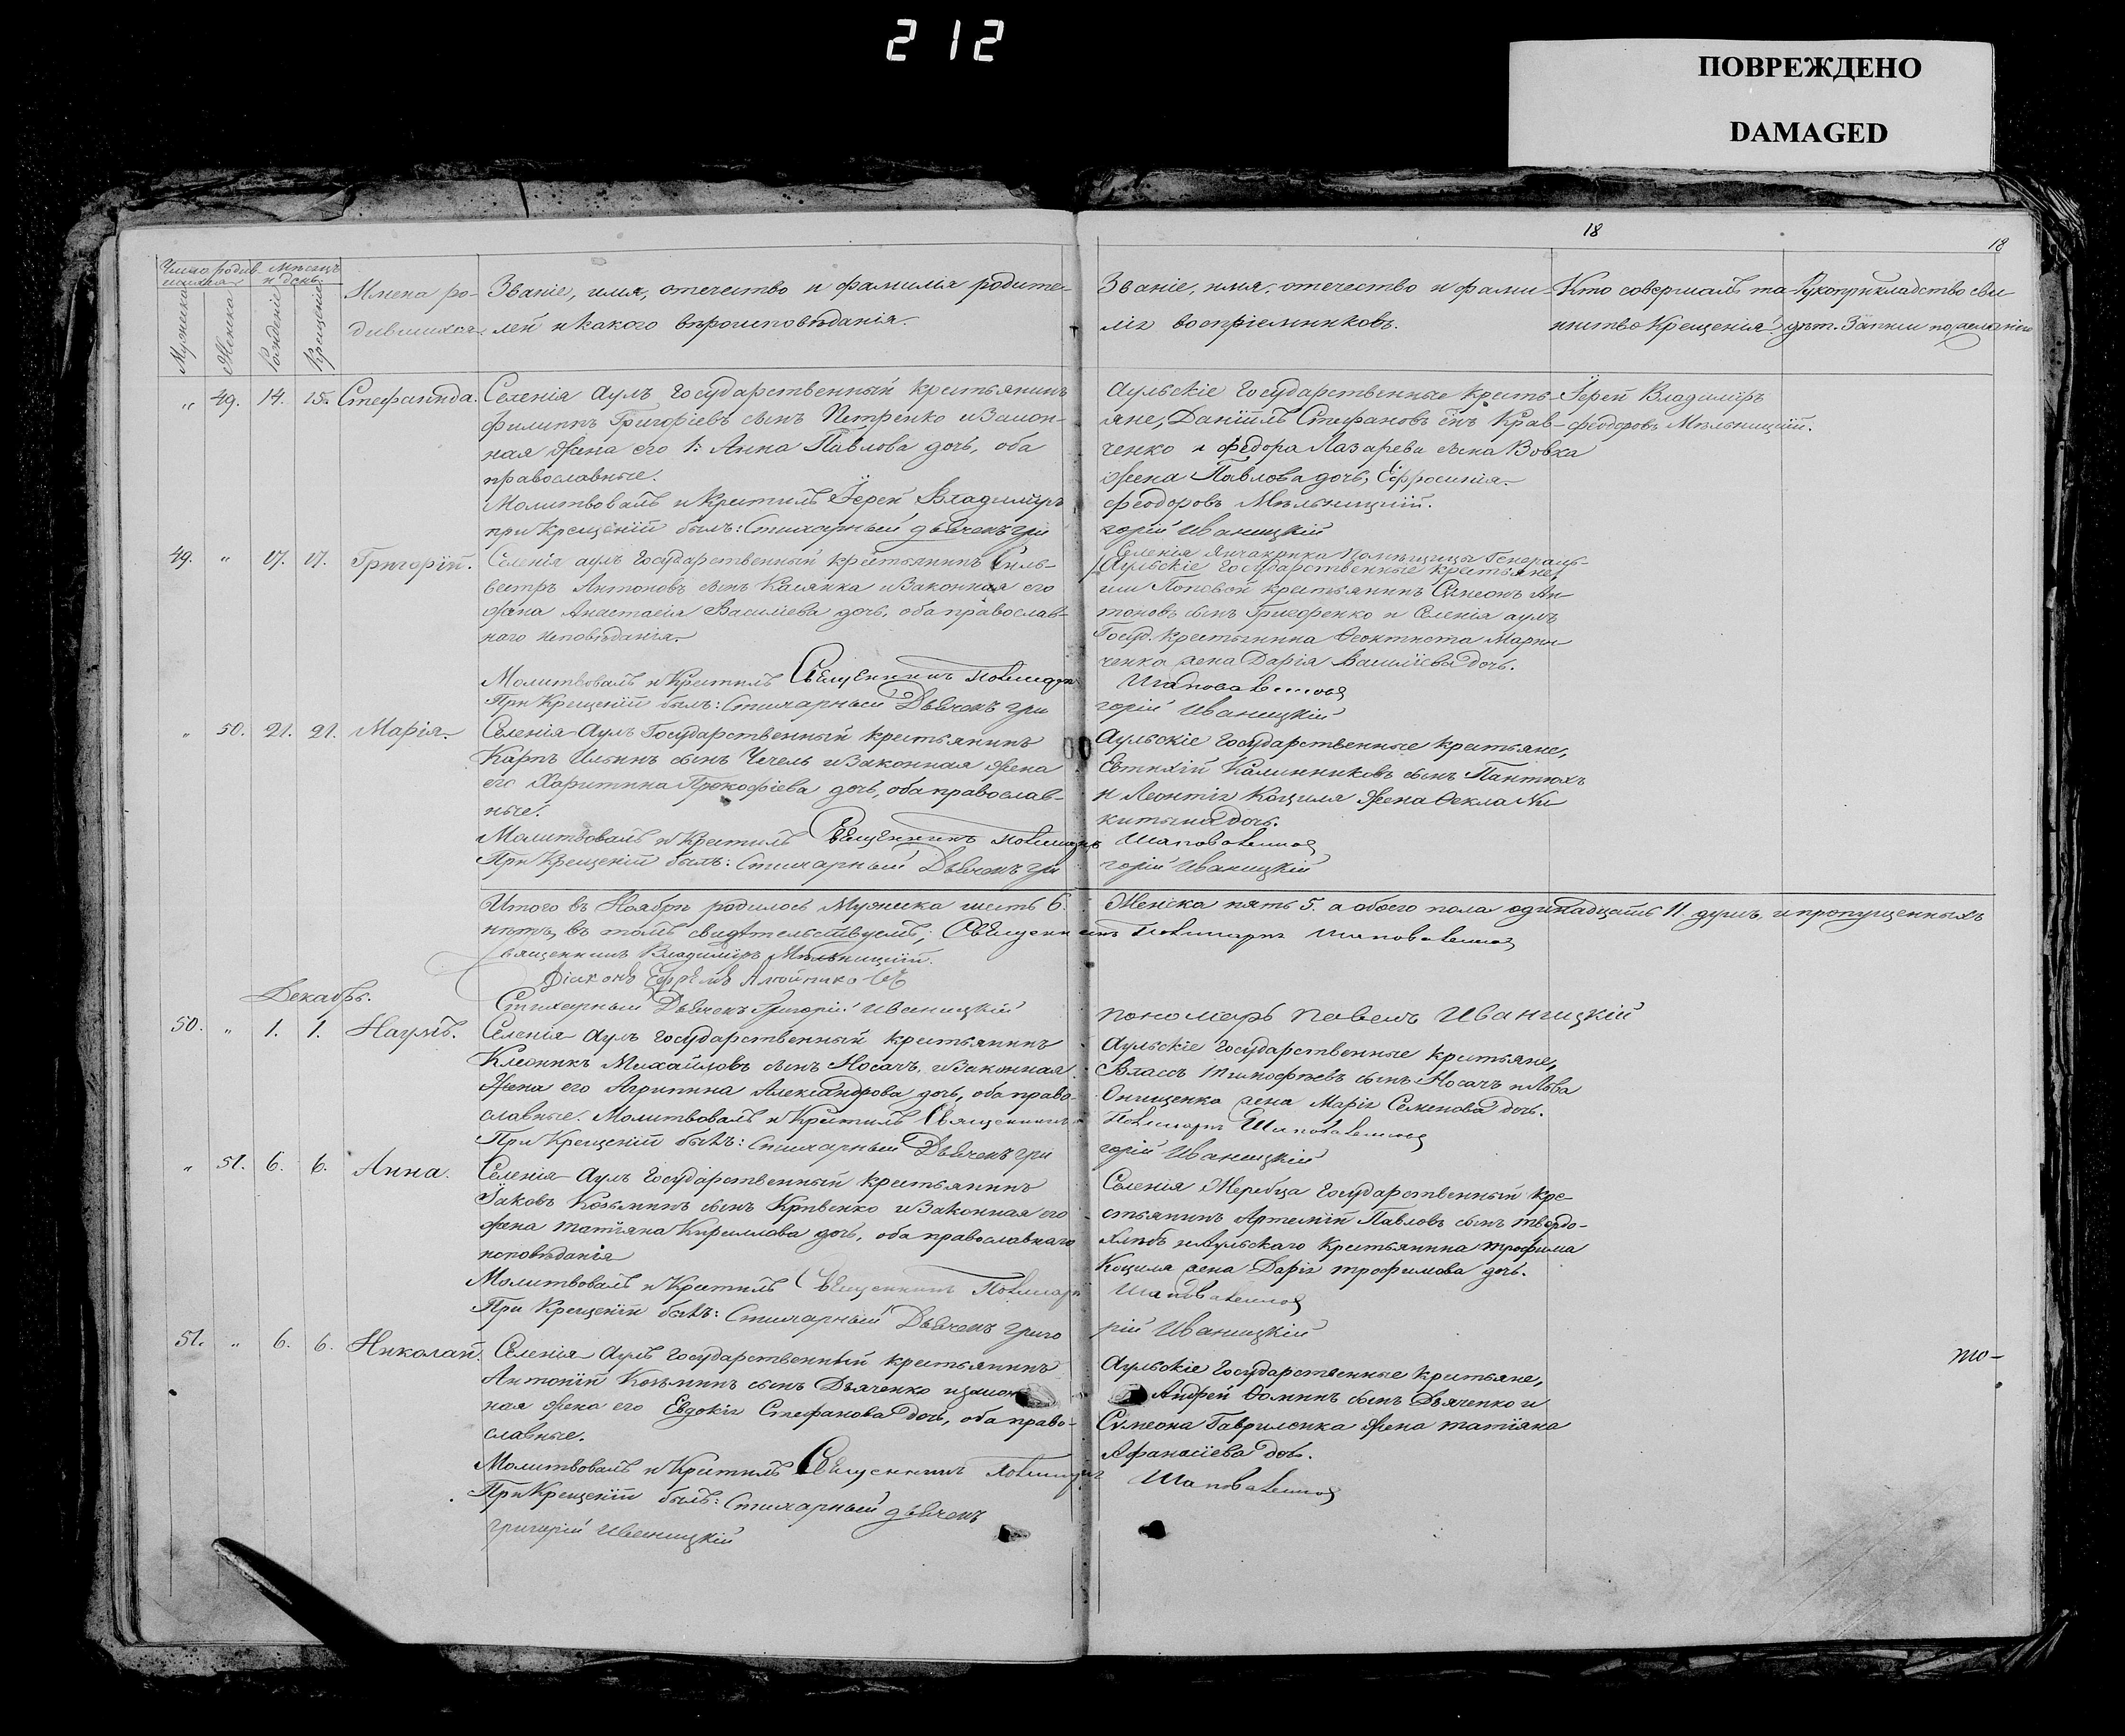 212
ПОВРЕЖДЕНО
DAMAGED
18
18
Число родив-
шихся
Мѣсяцъ
и день
Мужеска
Женска
Рожденіе
Крещеніе
Имена ро-
дившихся
Званіе, имя, отечество и фамилія родите-
лей и какого вѣроисповѣданія.
Званіе, имя, отечество и фами-
лія воспріемниковъ.
Кто совершалъ та-
инство Крещенія
Рукоприкладство сви
дѣт. Записи по желанію
" 49. 14. 15. Стефанида.
Селенія Аулъ государственный крестьянинъ
Филиппъ Григоріевъ сынъ Петренко и Закон-
ная жена его 1: Анна Павлова дочь, оба
православные.
Молитвовалъ и Крестилъ Іерей Владиміръ
при Крещеніи былъ: Стихарный дьячекъ Гри
Аульскіе Государственные кресть-
яне, Даніилъ Стефановъ сынъ Крав-
ченко и Федора Лазарева сына Вовка
жена Павлова дочь, Ефросинія.
Феодоровъ Мѣльницкій.
горій Иваницкій
Іерей Владиміръ
Феодоровъ Мѣльницкій.
49. " 17. 17. Григорій.
Селенія аулъ Государственный крестьянинъ Силь-
вестръ Антоновъ сынъ Калячка и Законная его
жена Анастасія Васильева дочь, оба православ-
наго исповѣданія.
Молитвовалъ и Крестилъ Священникъ
При Крещеніи былъ: Стихарный Дьячекъ Гри
Селенія Янчакрика Помѣщицы Генераль-
Аульскіе Государственные Крестьяне,
ши Поповой крестьянинъ Симеонъ Ан-
тоновъ сынъ Григоренко и Селенія аулъ
Госуд. Крестьянина Ѳеоктиста Марин
ченка жена Дарія Василіева дочь.
Шаповаленковъ
горій Иваницкій
" 50. 21. 21. Марія.
Селенія Аулъ Государственный крестьянинъ
Карпъ Ильинъ сынъ Чечель и Законная жена
его Харитина Прокофіева дочь, оба православ-
ные.
Молитвовалъ и Крестилъ Священникъ
При Крещеніи былъ: Стихарный Дьячекъ Гри
Аульскіе Государственные крестьяне,
Евтихій Калинниковъ сынъ Пантюхъ
и Леонтія Коциля жена Ѳекла Ни
китына дочь.
Шаповаленковъ
горій Иваницкій
Итого въ Ноябрѣ родилось Мужеска шесть 6. Женска пять 5. а обоего пола одинадцать 11 душъ, и пропущенныхъ
нѣтъ, въ томъ свидѣтельствуемъ; Священникъ Шаповаленковъ
Священникъ Владиміръ Мѣльницкій.
Діаконъ
Стихарный Дьячекъ Григорій Иваницкій
пономарь Павелъ Иваницкій
Декабрь.
50. " 1. 1. Наумъ.
Селенія Аулъ государственный крестьянинъ
Клеоникъ Михайловъ сынъ Носачъ, и Законная
Жена его Агрипина Александрова дочь, оба право-
славные. Молитвовалъ и Крестилъ Священникъ
При Крещеніи былъ: Стихарный Дьячекъ Гри
Аульскіе Государственные крестьяне,
Власъ Тимофѣевъ сынъ Носачъ и Льва
Онищенка жена Марія Семенова дочь.
Шаповаленковъ
горій Иваницкій
" 51. 6. 6. Анна.
Селенія Аулъ Государственный крестьянинъ
Іаковъ Козьминъ сынъ Кривенко и Законная его
жена Татіяна Кириллова дочь, оба православнаго
исповѣданія
Молитвовалъ и Крестилъ Священникъ
При Крещеніи былъ: Стихарный Дьячекъ Григо
Селенія Жеребца Государственный кре-
стьянинъ Артемій Павловъ сынъ Твердо-
хлѣбъ и Аульскаго Крестьянина Трофима
Коциля жена Дарія Трофимова дочь.
Шаповаленковъ
рій Иваницкій
51. " 6. 6. Николай.
Селенія Аулъ государственный крестьянинъ
Антоній Козьминъ сынъ Дьяченко и закон
ная жена его Евдокія Стефанова дочь, оба право-
славные.
Молитвовалъ и Крестилъ Священникъ
При Крещеніи былъ: Стихарный дьячекъ
Григорій Иваницкій
Аульскіе Государственные Крестьяне,
Андрей Ѳоминъ сынъ Дьяченко и
Симеона Гавриленка жена Татіяна
Афанасіева дочь.
Шаповаленковъ
то-